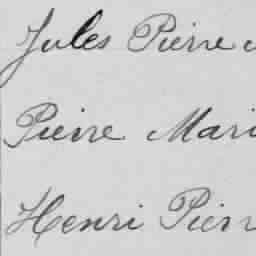 Jules Pierre
Pierre Mari
Henri Pierr